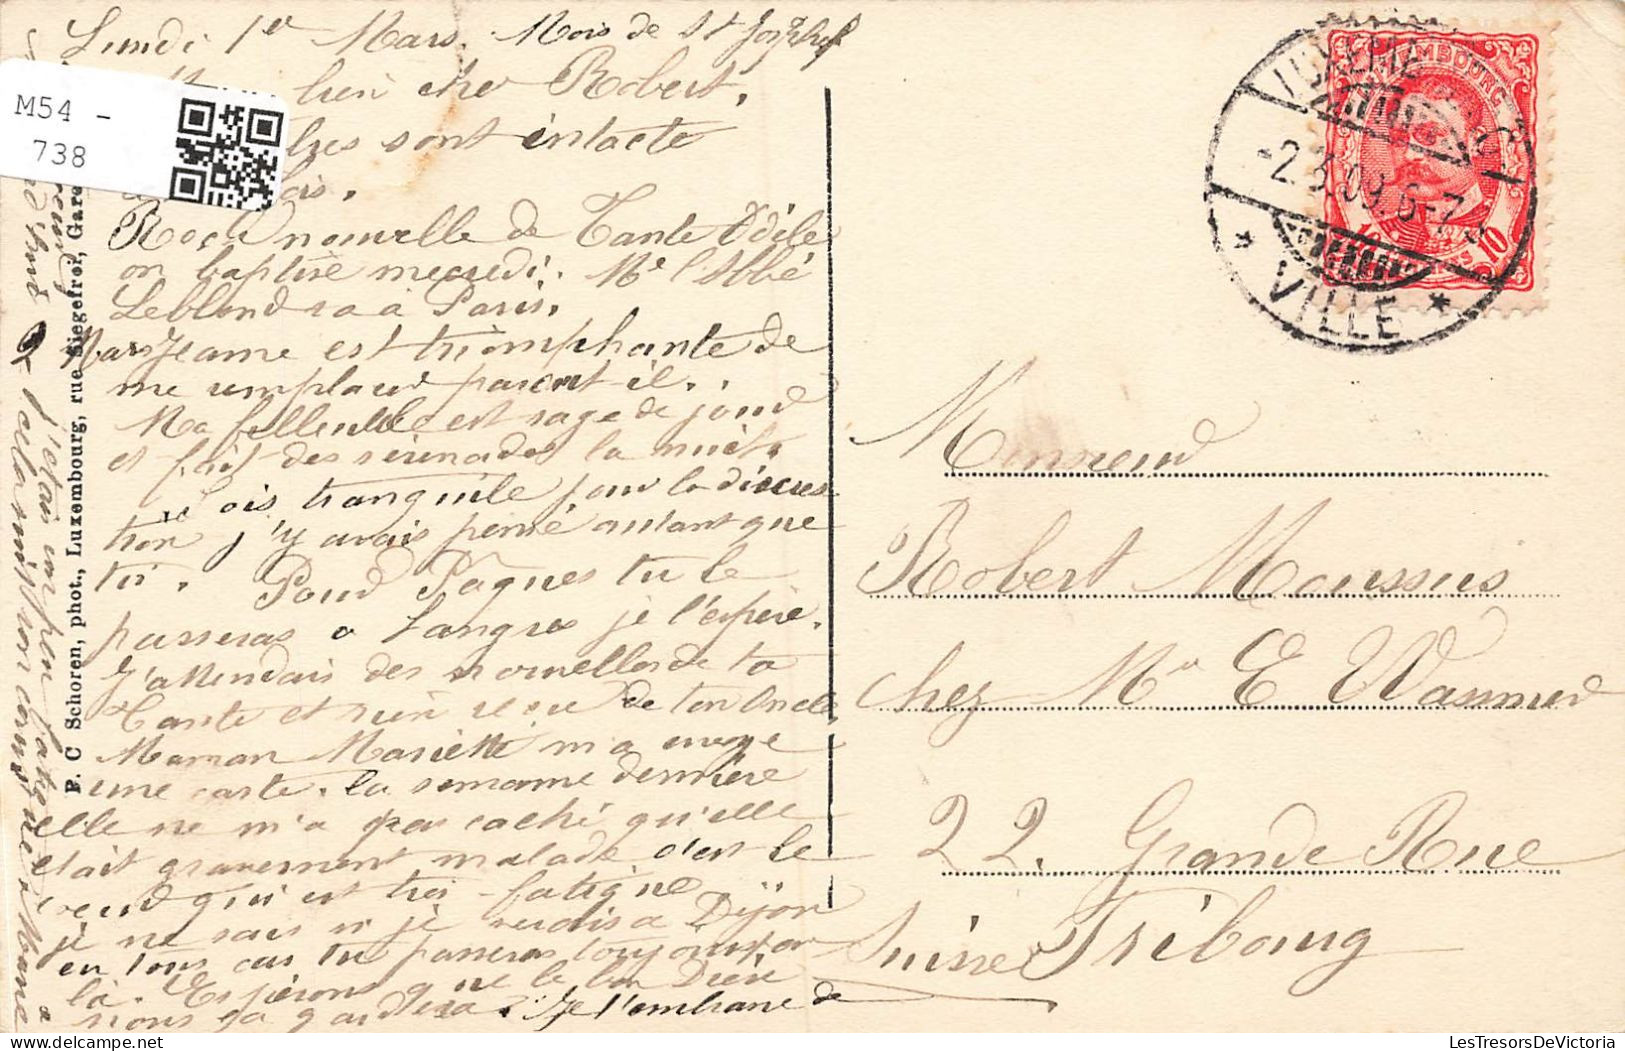 Lundi 1er Mars. Mois de St Joseph
bien cher Robert.
sont intacte
nouvelle de Tante Odile
on baptise mercredi. Mr l'Abbé
Leblond va à Paris.
Jeanne est triomphante de
me remplacer parait-il..
Ma fillenlle est sage de jour
et fait des sérénades la nuit.
sois tranquile pour la discres
tion j'y avais pensé autant que
toi. Pour Pâques tu le
passeras à Langres je l'espère.
J'attendais des nouvelles de ta
Tante et rien reçu de ton Oncle
Maman Mariette m'a envoyé
une carte la semaine dernière
elle ne m'a pas caché qu'elle
était gravement malade c'est le
cœur qui est très fatigué
je ne sais si je serais à Dijon
en tous cas tu passeras toujours par
là. Espérons que le bon Dieu
nous la gardera. Je t'embrasse de
M54 -
738
P. C Schoren, phot., Luxembourg, rue Siegefroi, Gare
j'étais un peu
LUXEMBOURG
-2.3.09. 6-7
* VILLE *
LUXEMBOURG
10 10
Monsieur
Robert Moussus
chez Mr E Wasmer
22. Grande Rue
Fribourg
Suisse
LesTresorsDeVictoria.com